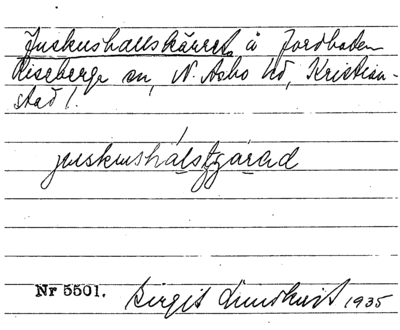 Juskushallskärret å Jordboden
Riseberga sn, N. Asbo hd, Kristian-
stad l.
Nr 5501. Birgit Lundkvist 1935